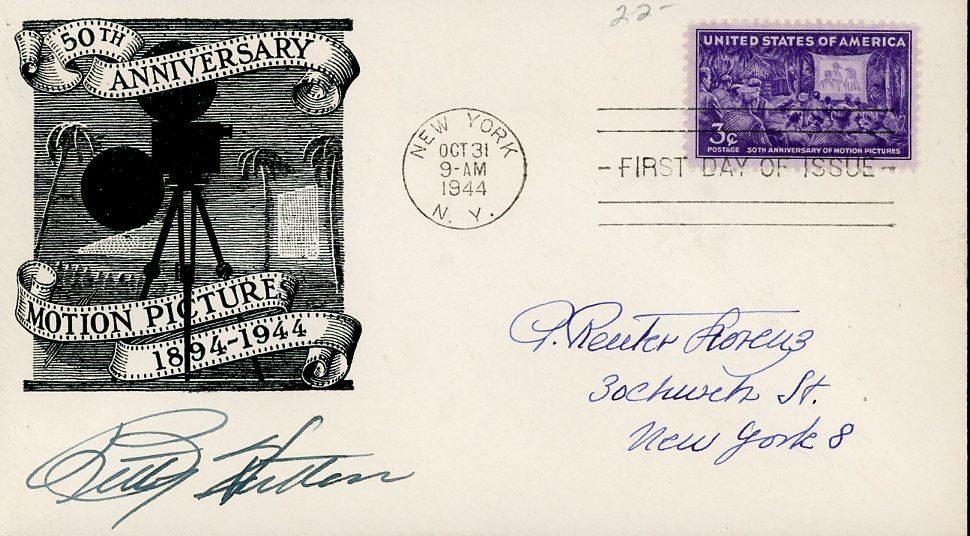 22-
50TH
ANNIVERSARY
MOTION PICTURE
1894-1944
NEW YORK
OCT 31
9-AM
1944
N. Y.
UNITED STATES OF AMERICA
3¢
POSTAGE 50TH ANNIVERSARY OF MOTION PICTURES
-FIRST DAY OF ISSUE-
Reuter Lorenz
30 Church St.
New York 8
Betty Hutton